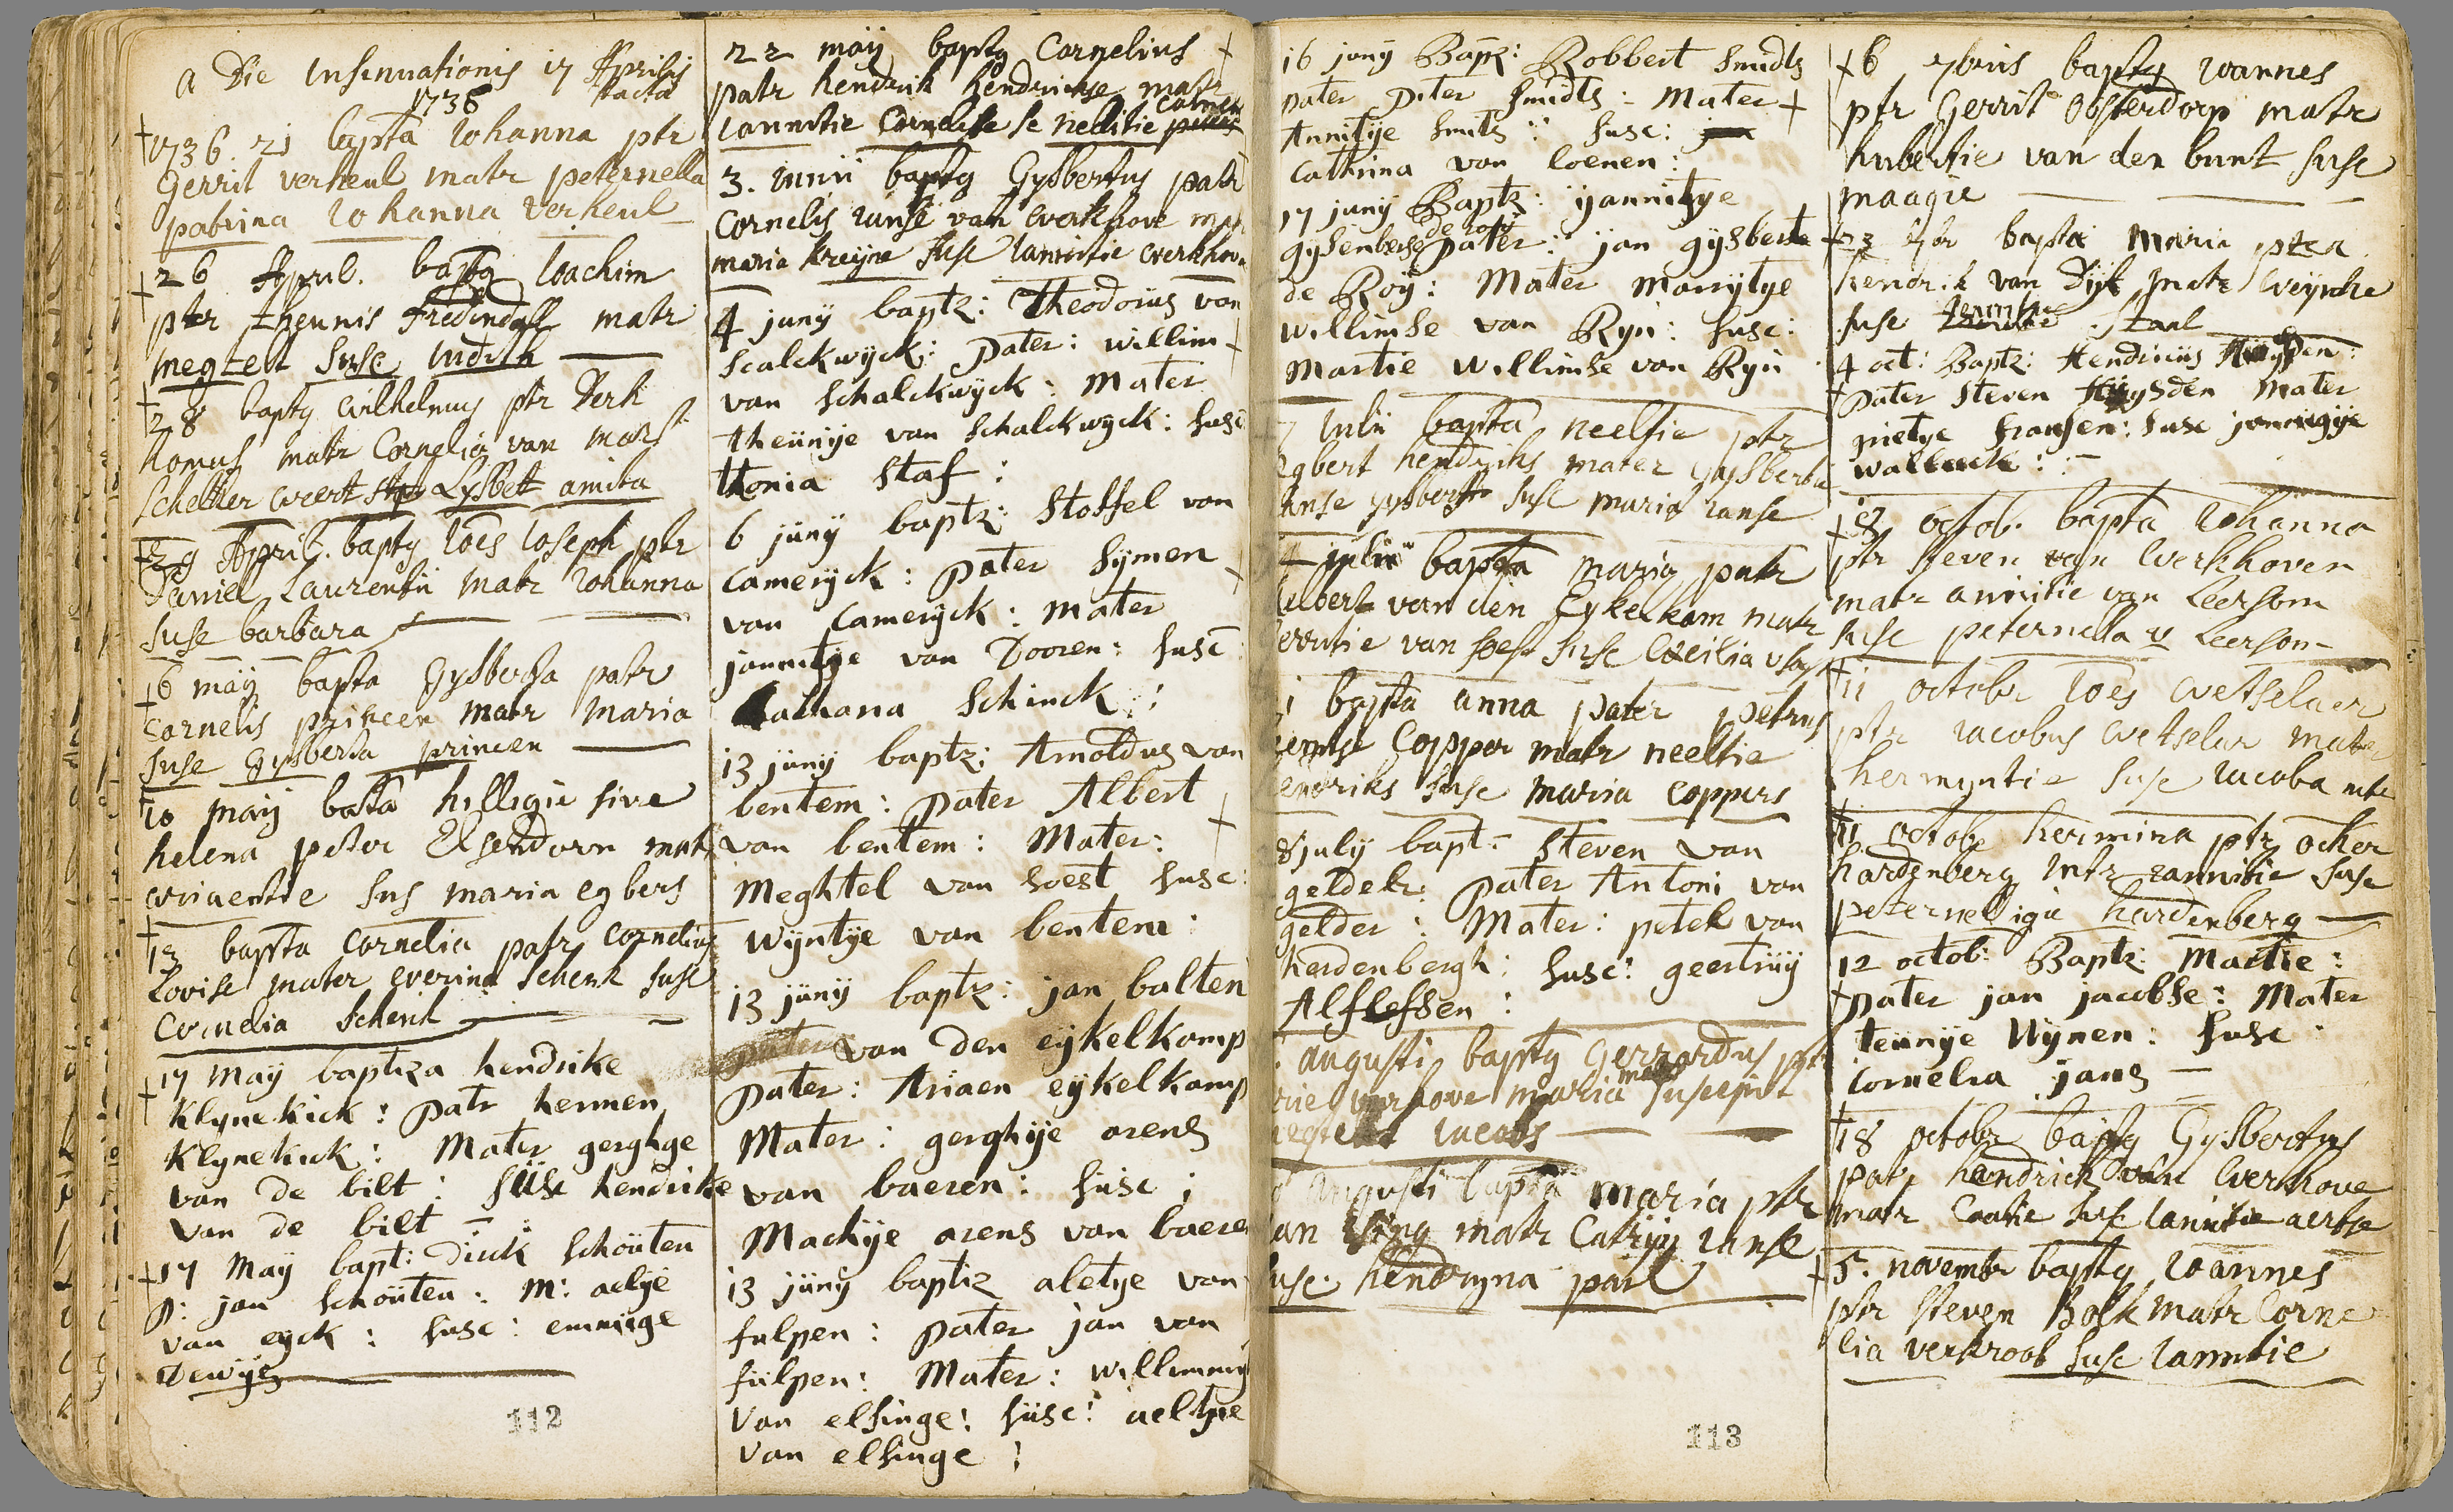 A Die insinuationis 17 Aprilis
1736 facta
1736. 21 bapta Iohanna ptr
Gerrit verheul matr peternella
patrina Iohanna verheul
26 April. baptq Ioachim
ptr theunis matr
megtelt susc Iudith
28 baptq wilhelmus ptr Derk
homus matr Cornelia van
weert Lysbett amita
29 April. baptq Ioes Ioseph ptr
Daniel Laurentii matr Iohanna
suse barbara
6 maij bapta Gysberta patr
Cornelis princen matr Maria
suse Gysberta princen
10 maij bapta hilligie sive
helena peter Elsendoorn matr
wijnentie sus maria egbers
13 bapta Cornelia patr Cornelius
Lovise mater everina schenk suse
Cornelia Schenk
17 Maij baptiza hendrike
Klynekick: patr hermen
Klynekick: Mater gerghge
van de bilt: süse hendrike
van de bilt
17 Maij bapt: Dirck schoüten
P: jan schoüten: M: aeltje
van eyck: suse: emmige
Dewijs
22 maij baptq Cornelius
patr hendrik hendrickse matr
Iannitie neeltie
3. Iunii baptq Gysbertus patr
Cornelis Ianse van werkhove
maria kreyne suse Iannitie werkhove
4 junij baptz: Theodorus van
Scalckwyck: Pater: willim
van schalckwyck: Mater
theünije van schalckwyck: susc
thonia staf:
6 jünij baptz: Stoffel van
Cameryck: Pater Sijmen
van Cameryck: Mater
jannitje van Dooren: susc
Cathana Schinck:
13 jünij baptz: Arnoldus van
bentem: Pater Albert
van bentem: Mater:
Meghtel van soest susc:
Wijntije van bentem:
13 jünij baptz: jan balten
pater van den eijkelkamp
Pater: Ariaen eijkelkamp
Mater: gerghije arens
van baeren: süsc:
Mackije arens van baeren
13 jünij baptiz aletye van
fulpen: Pater jan van
fülpen: Mater: willimmij
Van elsinge: süsc: aeltjie
Van elsinge:
112
16 junij Bapz: Robbert smidts
pater Piter smidts: Mater
Annitije smits: susc:
Cathrina van loenen:
17 junij Baptz: ijannitye
de roij
gysenberse pater: jan gysberte
de Roij: Mater Marrytge
willimse van Ryn: susc:
Martie willimse van Ryn
Iulii bapta neeltie ptr
Egbert hendriks mater Gysberta
Ianse Gysberts suse maria Ianse
julii bapta maria patr
van den Eykelkam matr
van soest suse Cecilia
bapta anna pater petrus
Coppor matr neeltie
hendriks suse maria Coppers
8 julij bapt: Steven van
gelder: Pater Antoni van
gelder: Mater: petek van
herdenbergh: susc: geertrüij
Alflefsen:
augusti baptq Gerrardus ptr
verhove maria matr suscepit
Iacobs
augusti bapta Maria ptr
Ian matr Catrijn Ianse
suse. hendryna
6 7bris baptq Ioannes
ptr Gerrit Oosterdorp matr
hubertie van den bunt suse
maagie
23 7br bapta Maria ptr
hendrik van Dijk matr weijntie
suse Staal
4 oct: Baptz: Hendricüs
Pater Steven Mater
pietye fransen: susc jannigije
wallack:
8 octob. bapta Iohanna
ptr Steven van werkhoven
matr annitie van Leersom
suse peternella v Leersom
11 octobr Ioes wetselaer
ptr Iacobus wetselar mater
hermyntie suse Iacoba
11 octobr hermina ptr ocker
hardenberg mtr Iannitie suse
peternelligie hardenberg
12 octob: Baptz: Martie:
Pater jan jacobse: Mater
teünije Wijnen: susc
Cornelia jans
18 octobr baptq Gysbertus
patr hendrick van werkhove
matr Caatie suse Iannitie aertse
5. novembr baptq Ioannes
ptr Steven Bosk matr Corne
lia verkroost suse Iannitie
113